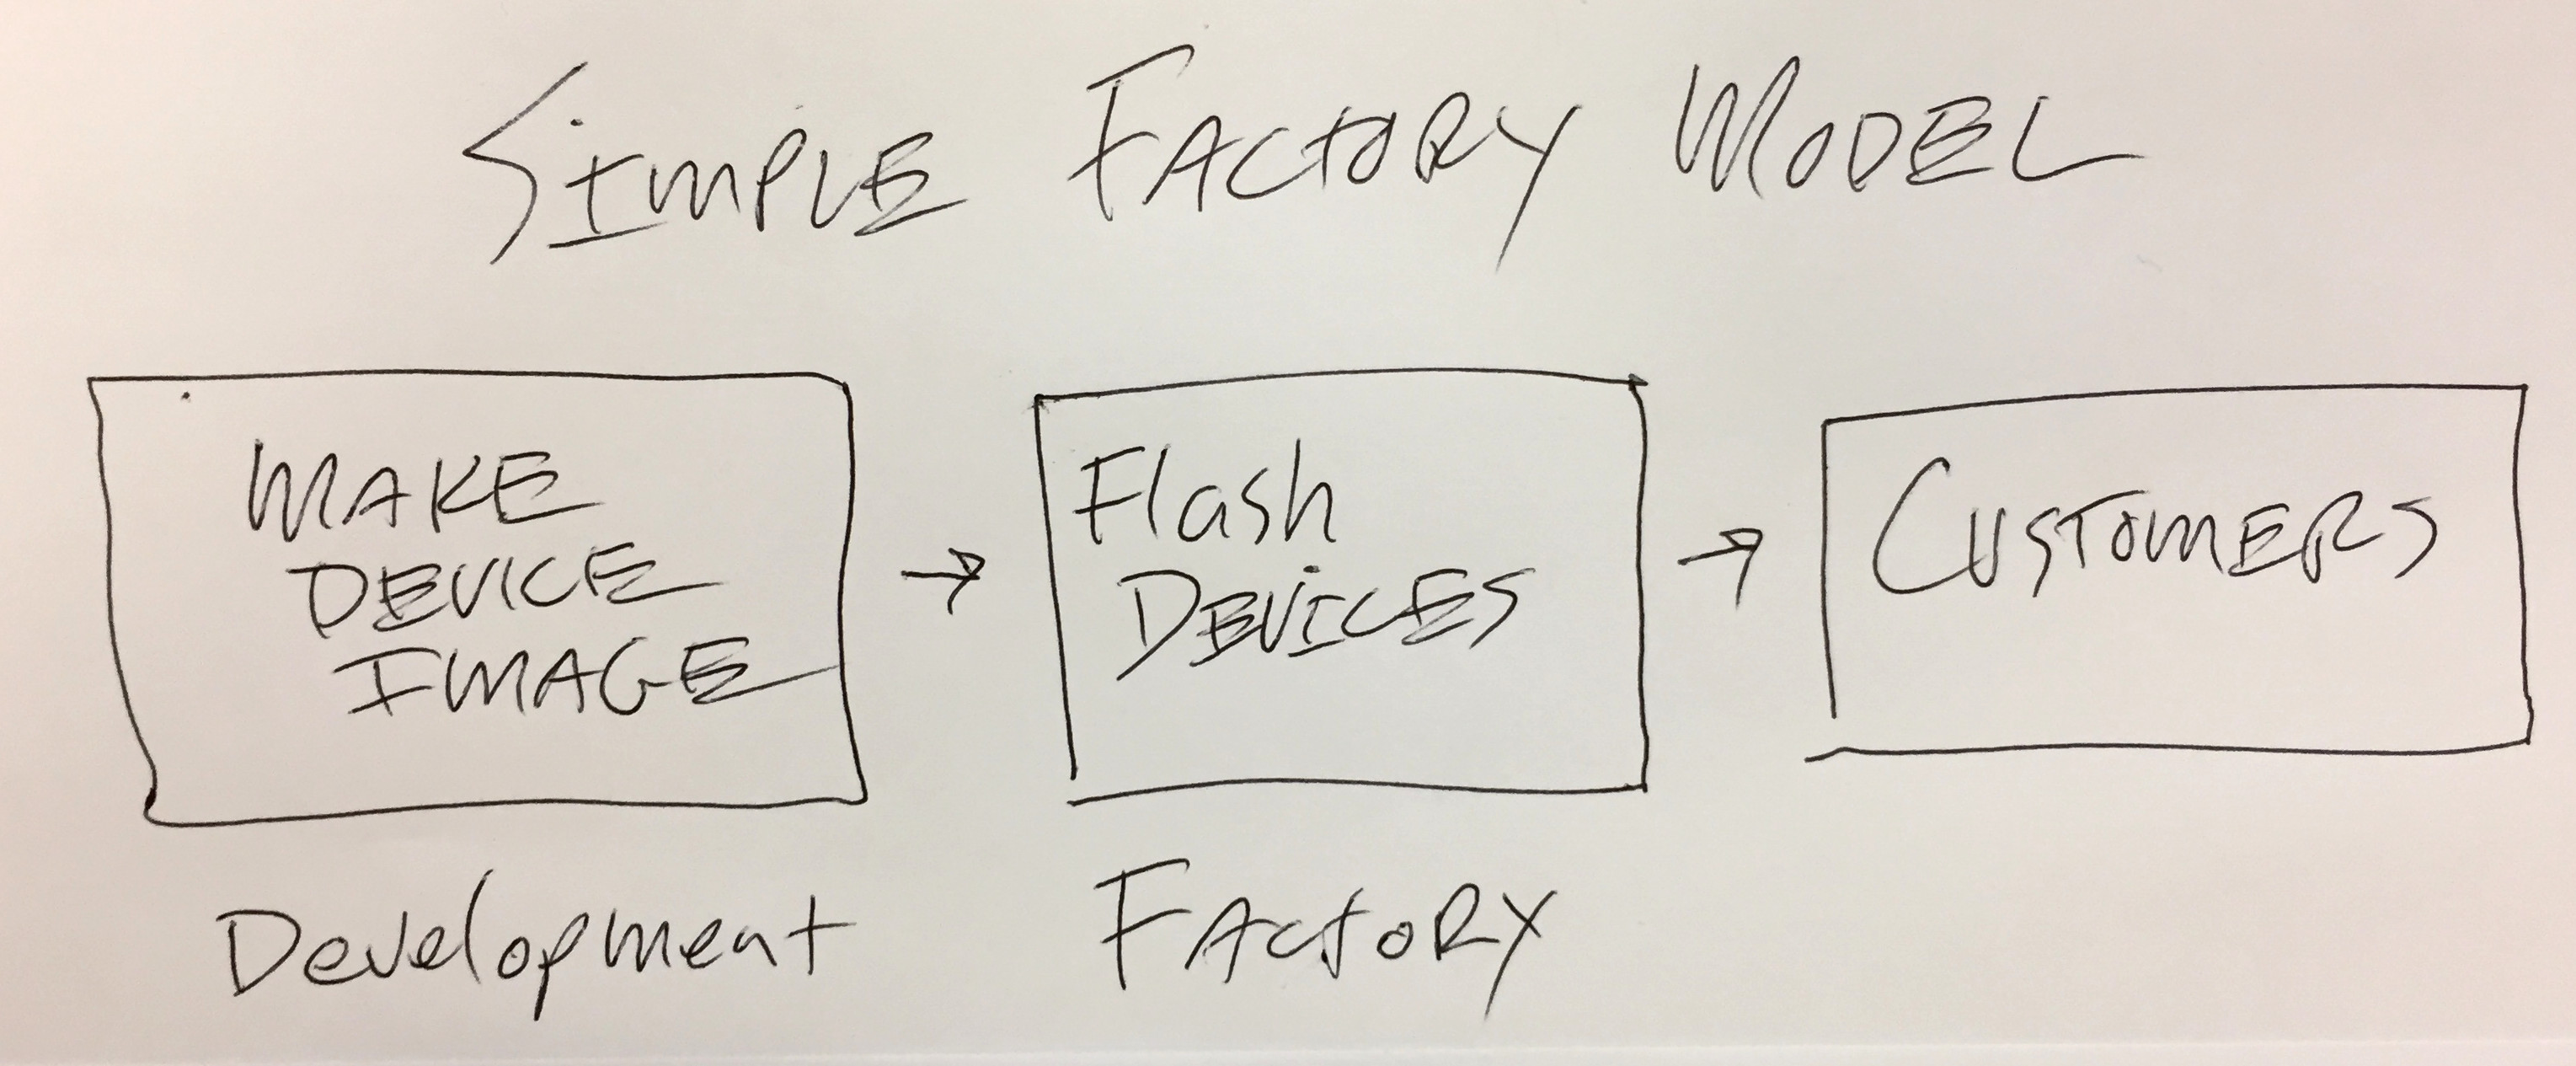 SIMPLE FACTORY MODEL
MAKE
DEVICE
IMAGE
Flash
DEVICES
CUSTOMERS
Development
FACTORY